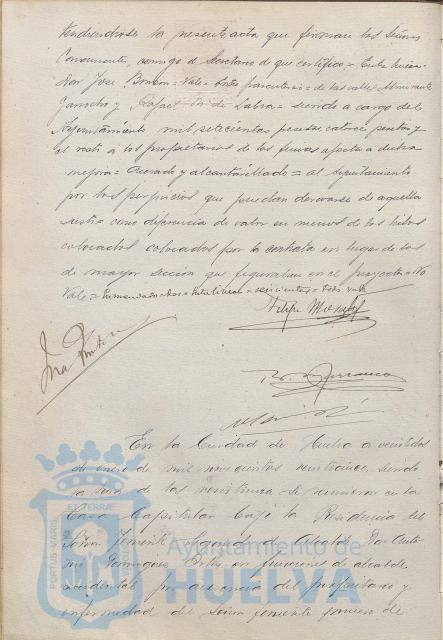 tendiendose la presente acta que firman los Señores
Concurrentes, conmigo el Secretario de que certifico = Entre lineas =
Don Jose = Vale = Entre parentesis = de las calles Almirante
Garrocho y Rafael de Labra = siendo a cargo del
Ayuntamiento mil setecientas pesetas catorce pesetas y
el resto á los propietarios de las fincas afectas a dicha
mejora = Acerado y alcantarillado = al Ayuntamiento
por los perjuicios que puedan derivarse de aquella
= como diferencia de valor en menos de los tubos
colocados colocados por la contrata en lugar de los
de mayor sección que figuraban en el proyecto = No
Vale = Enmendado = dos = = seiscientas = todo vale
Felipe
En la Ciudad de Huelva a
de enero de mil novecientos veinticinco, siendo
la hora de las se reunieron en la
Casa Capitular bajo la Presidencia del
Señor Teniente Segundo de Alcalde Don
Dominguez en funciones de alcalde
accidental por ausencia del propietario y
enfermedad del Señor teniente primero de
PORTUS MARIS
ET TERRÆ
Ayuntamiento de
HUELVA